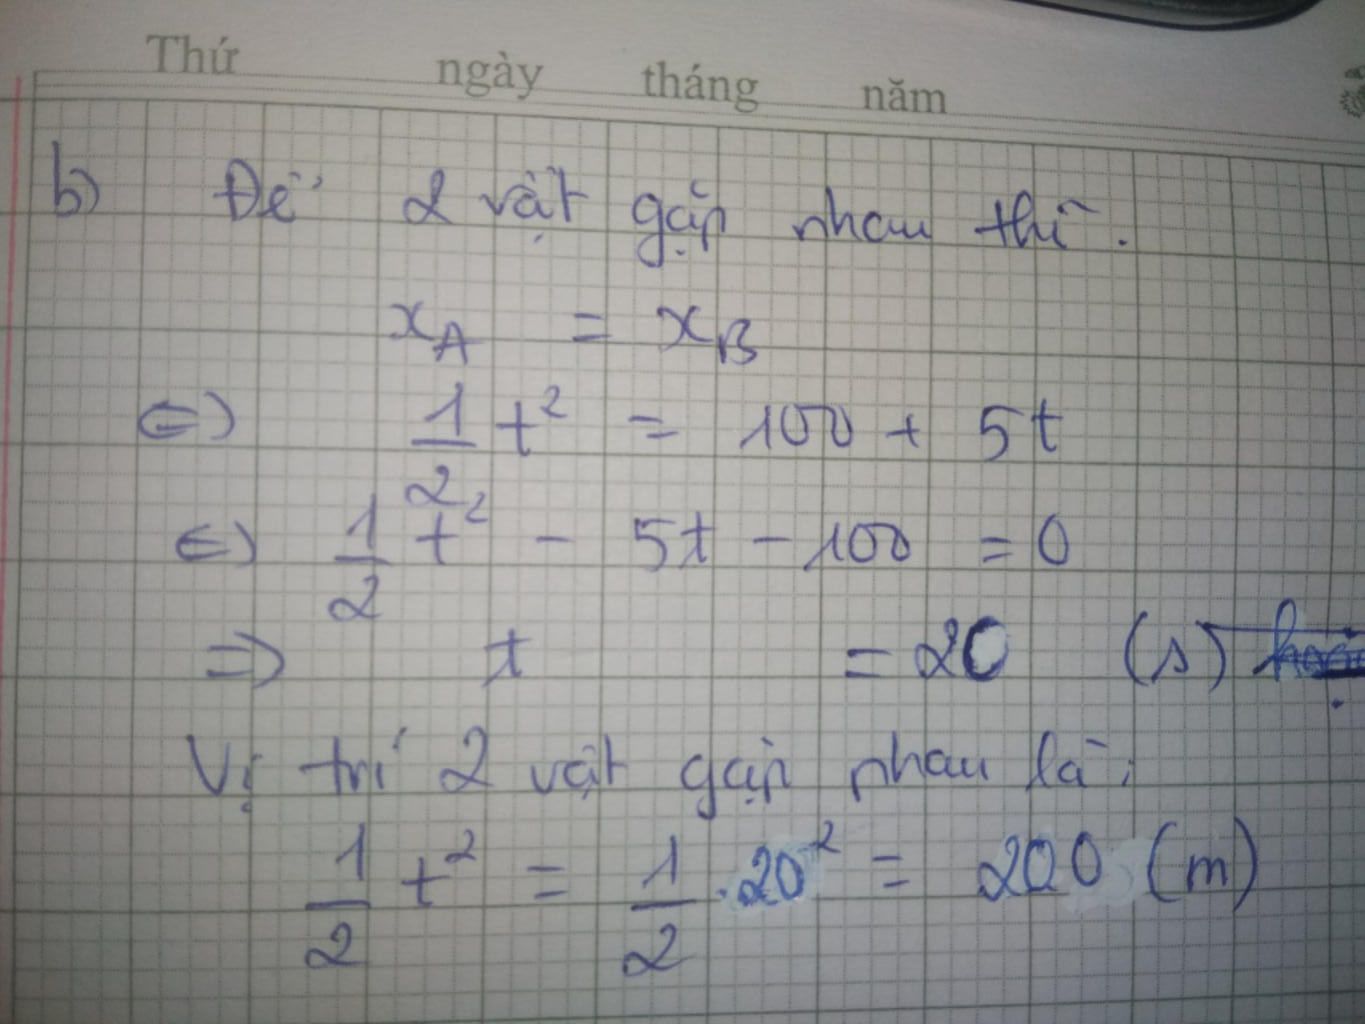 Thứ ngày tháng năm
b) Để 2 vật gặp nhau thì.
x_A = x_B
⇔ 1/2 t² = 100 + 5t
⇔ 1/2 t² - 5t - 100 = 0
⇒ t = 20 (s)
Vị trí 2 vật gặp nhau là:
1/2 t² = 1/2 .20² = 200 (m)